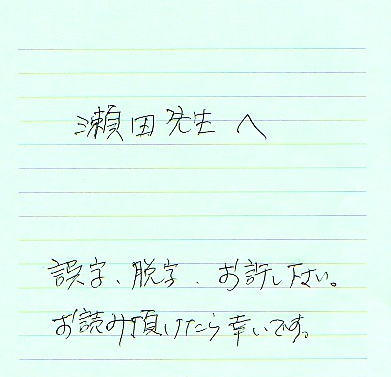 瀬田先生 へ
誤字、脱字、お許し下さい。
お読み頂けたら幸いです。